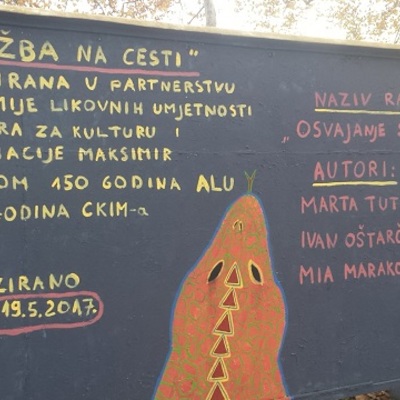 ŽBA NA CESTI"
IRANA U PARTNERSTVU
MIJE LIKOVNIH UMJETNOSTI
RA ZA KULTURU I
ACIJE MAKSIMIR
OM 150 GODINA ALU
GODINA CKIM-a
ZIRANO
19.5.2017.
NAZIV RA
„OSVAJANJE S
AUTORI:
MARTA TUT
IVAN OŠTARČ
MIA MARAKO